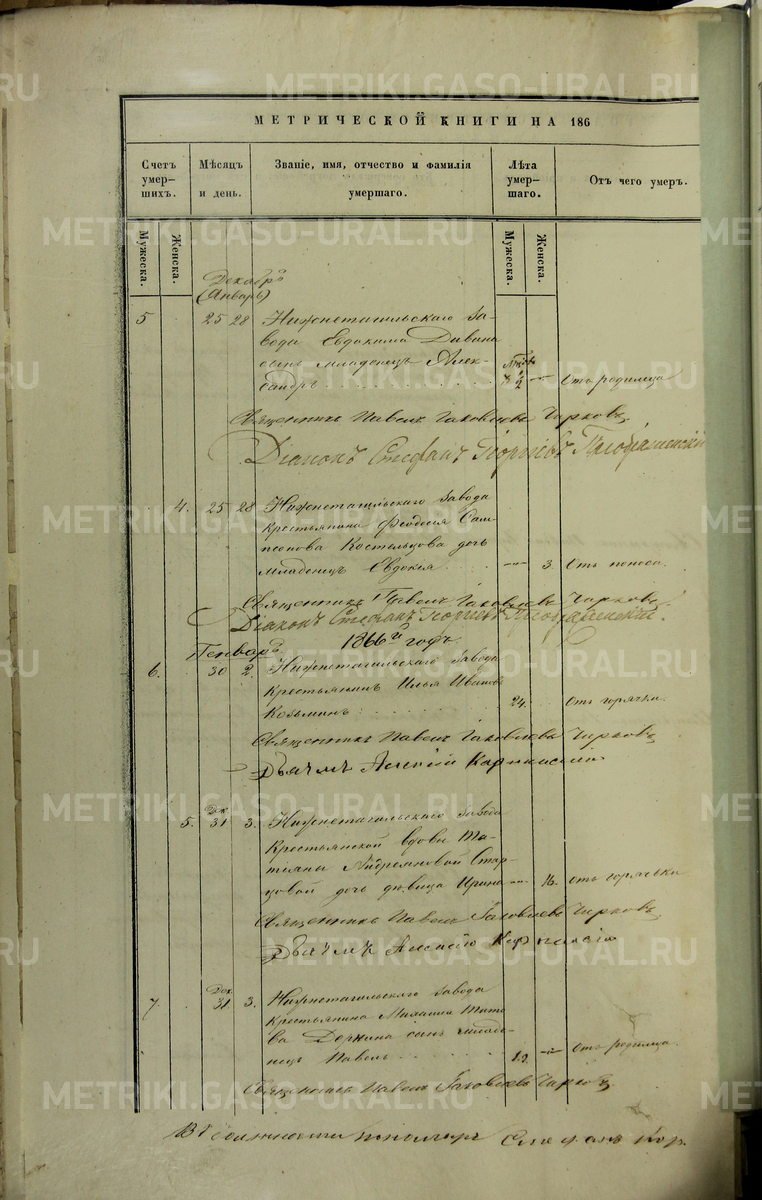 МЕТРИЧЕСКОЙ КНИГИ НА 186
Счетъ умер- шихъ.
Мѣсяцъ и день.
Званіе, имя, отчество и фамилія умершаго.
Лѣта умер- шаго.
Отъ чего умеръ.
Мужеска. Женска. Мужеска. Женска.
Декабрь
(Январь)
5 25 28 Нижнетагильскаго За-
вода Евдокима
сынъ младенецъ Алек-
сандръ 2 Отъ родимца
Священникъ Павелъ Іаковлевъ Чирковъ
Діаконъ Стефанъ Георгіевъ Преображенскій
4. 25 28 Нижнетагильскаго Завода
крестьянина Феодосія Сам-
псонова Костельцова дочь
младенецъ Евдокія 3. Отъ поноса.
Священникъ Павелъ Іаковлевъ Чирковъ
Діаконъ Стефанъ Георгіевъ Преображенскій.
Генварь 1866й годъ
6. 30 2. Нижнетагильскаго Завода
крестьянинъ Илья Ивановъ
Козьминъ 24. Отъ горячки
Священникъ Павелъ Іаковлевъ Чирковъ
Дьячекъ Алексій
Дек.
5. 31 3. Нижнетагильскаго Завода
крестьянской вдовы Та-
тіаны Андреяновой Стар-
цовой дочь дѣвица Ирина 16. отъ горячьки
Священникъ Павелъ Іаковлевъ Чирковъ
Дьячекъ Алексій
Дек.
7. 31. 3. Нижнетагильскаго Завода
крестьянина Михаила Тито-
ва сынъ младе-
нецъ Павелъ Отъ родимца.
Священникъ Павелъ Іаковлевъ Чирковъ
В должности пономаря Стефанъ Кор
METRIKI.GASO-URAL.RU